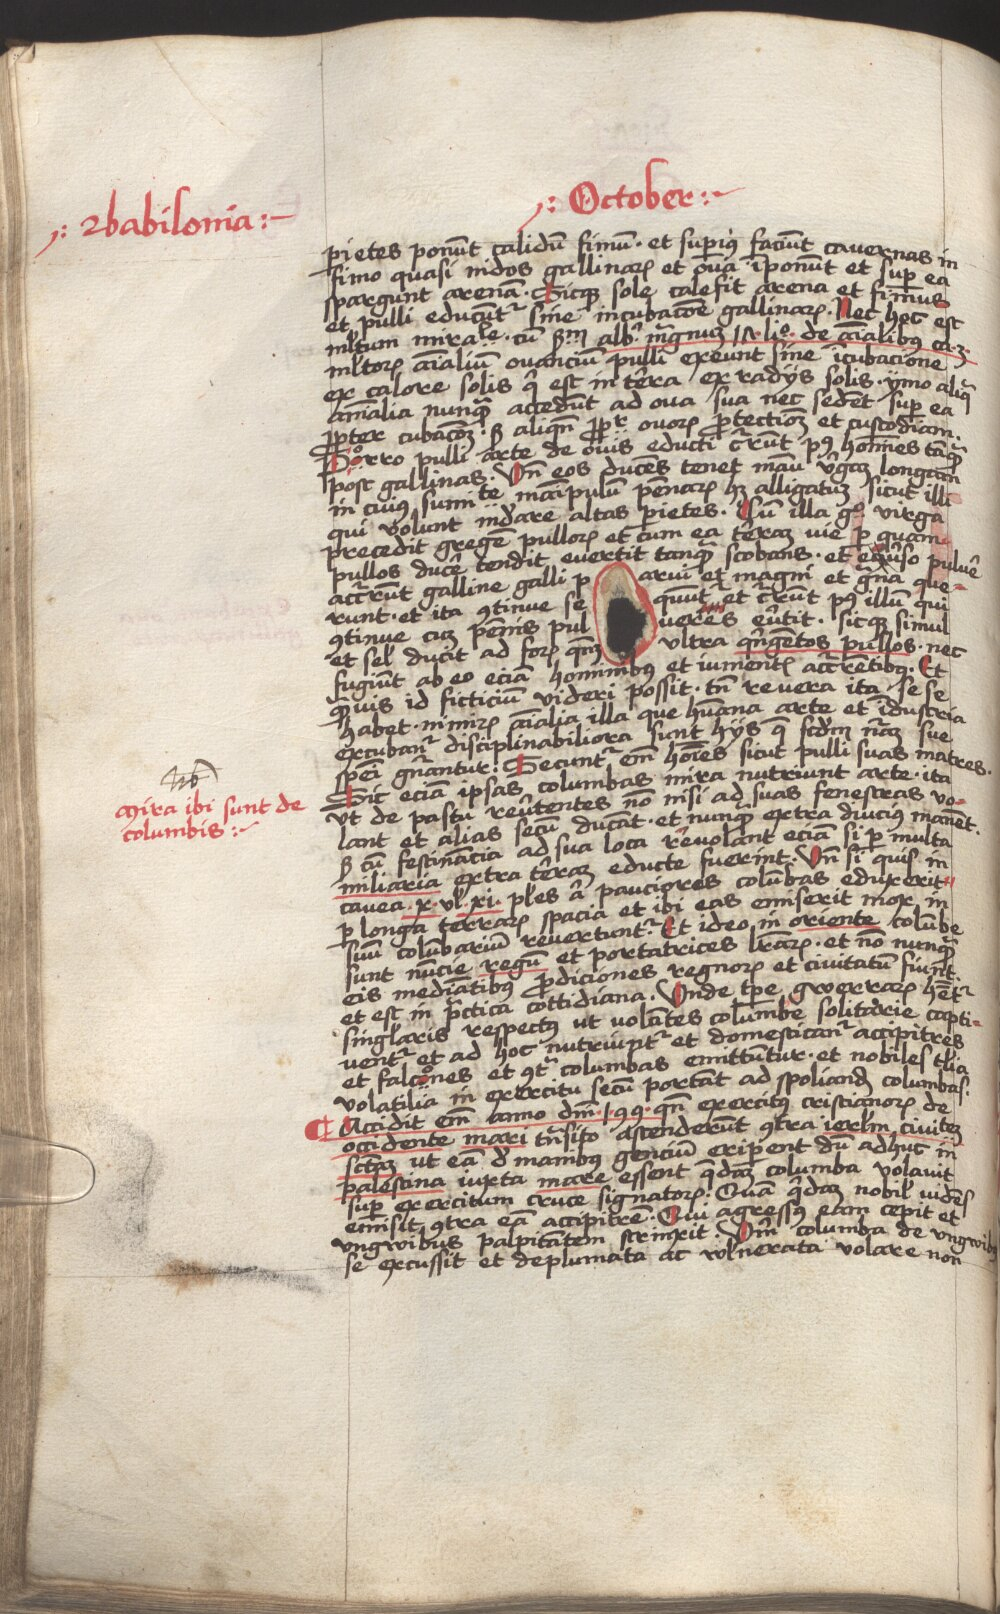 October
2babilonia
pietes ponūt calidū fimū · et superiꝯ faciūt cavernas in
fimo quasi nidos gallinarꝝ et oūa īponūt et supͥ ea
spargunt arenā · Sicqꝫ sole calefit arena et fimuſ
et pulli educūtͬ sine incubacōe gallinarꝝ · Nec hoc est
ml̄tum mira^le · cū ẜm alb̄ m̄gnuꝫ lio · de aīalibuꝫ ca
ml̄torꝝ aīaliū ovanciū pulli exeunt sine īcubacione
ex calore solis q̄ est in t̄ra ex radijs solis · ymo aliq̄
aīalia nunqꝫ accedūt ad oua sua nec sedēt sup̄ ea
ꝓpter cubacōꝫ · ẜ aliqn̄ ꝓpͬ ovorꝝ ꝓtectioꝫ et custodiam ·
Porro pulli arte de ovis educti c̄rūt pꝯ hoīnes tāqꝫ
post gallinas · Vn̄ eos ducēs tenet manū v̄gaꝫ longam
in cuius summite manipulū pēnarꝝ hꝫ alligatuꝫ sicut illi
qui volunt mūdare altas pietes · Cū illa gͦ virga
precedit gregē pullorꝝ et cum ea terā vie ꝑ quam
pullos ducē tendit evertit tanqꝫ scobans · et eūso pulūe
accr̄rūt galline galli p arui et magni et grna que-
runt · et ita ꝯtinue se quūtͬ et c̄rūt pꝯ illum qui
ꝯtinue cuꝫ pēnis pul ueres eūtit · sicqꝫ simul
et sel̄ ducit ad forꝝ qn̄qꝫ ultra qn̄gentos pullos · nec
fugiūt ab eo eciā hominibus et iumentꝭ accr̄rētibꝫ · Et
qͣuis id ficticiū videri possit · tn̄ revera ita se se
habet · nimirꝝ aīalia illa que hūana arte et īdustria
excubanͬ disciplinabiliora sunt hijs q̄ scd̄m nr̄aꝫ sue
spēi gn̄antur · Secuntͬ em̄ hoīes sicut pulli suas matres ·
Sic eciā ipsas columbas mira nutriunt arte · ita
ut de pastu reūtentes nō nisi ad suas fenestras vo-
lant et alias secū ducāt · et nunqꝫ extra diuciꝯ manēt ·
ẜ cū festinācia ad sua loca revolant eciā si ꝑ multa
miliaria extra terrā educte fuerint · Vn̄ si quis in
cavea · x · vl̄ · xi · pl̄es ā pauciores colūbas eduxerit
ꝑ longa terrarꝝ spacia et ibi eas emiserit mox in
suū colūbariū revertuntͬ · Et ideo in oriente colūbe
sunt nūcie regū et portatrices lr̄arꝝ · et nō nunqꝫ
eis mediātibus ꝓdiciones regnorꝝ et civitatū fiunt ·
et est in pͣctica cottidiana · Vnde tp̄e gwerrarꝝ hētͬ
singl̄aris respectꝯ ut volātes columbe solitarie capti-
ventͬ et ad hoc nutriuntͬ et domesticanͬ accipitres
et falcones et ꝯtͣ columbas emittuntur · et nobiles tl̄ia
volatilia in exercitu secū portāt ad spoliandꝫ columbas ·
Accidit em̄ anno dm̄ · 1 · 99 · qn̄ exercitꝯ cristianorꝝ de
occidente mari trn̄sito ascenderūt ꝯtra ierl̄m civitē
sctām ut eā d̄ manibus genciū eriperent dū adhuc in
palestina iuxta mare essent qͣdaꝫ columba volavit
sup̄ exercitum cruce signatorꝝ · Quā qͥdaꝫ nobil̄ vidēs
emisit ꝯtra eā accipitrē · Qui agressꝯ eam cepit et
ungwibus palpitātem strinxit · Vn̄ columba de ungwibꝯ
se excussit et deplumata ac vulnerata volare non
Nb
Mira ibi sunt de
columbis